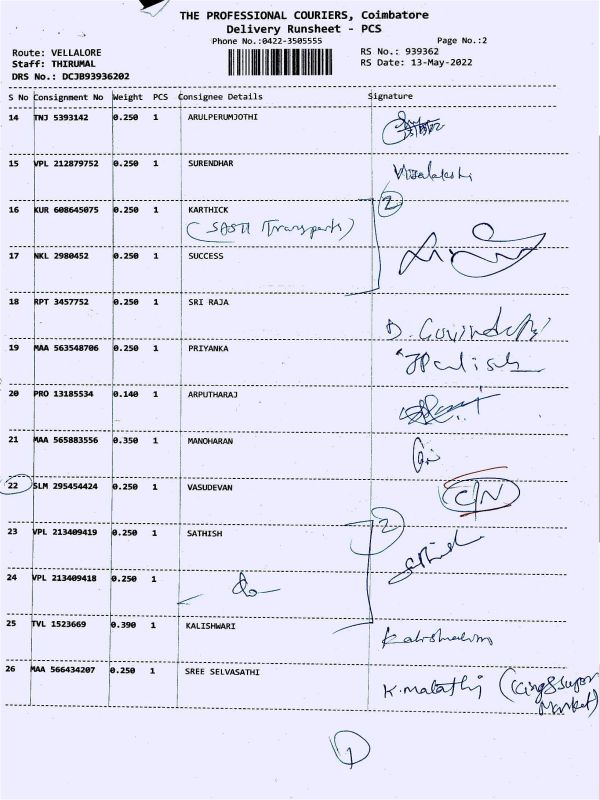 THE PROFESSIONAL COURIERS, Coimbatore
Delivery Runsheet - PCS
Phone No.:0422-3505555 Page No.:2
Route: VELLALORE RS No.: 939362
Staff: THIRUMAL RS Date: 13-May-2022
DRS No.: DCJB93936202
S No Consignment No Weight PCS Consignee Details Signature
14 TNJ 5393142 0.250 1 ARULPERUMJOTHI
15 VPL 212879752 0.250 1 SURENDHAR
16 KUR 608645075 0.250 1 KARTHICK 2
17 NKL 2980452 0.250 1 SUCCESS
18 RPT 3457752 0.250 1 SRI RAJA
19 MAA 563548706 0.250 1 PRIYANKA
20 PRO 13185534 0.140 1 ARPUTHARAJ
21 MAA 565883556 0.350 1 MANOHARAN
22 SLM 295454424 0.250 1 VASUDEVAN C/N
23 VPL 213409419 0.250 1 SATHISH 2 Sathish
24 VPL 213409418 0.250 1
25 TVL 1523669 0.390 1 KALISHWARI
26 MAA 566434207 0.250 1 SREE SELVASATHI K. Malathi
Market)
1